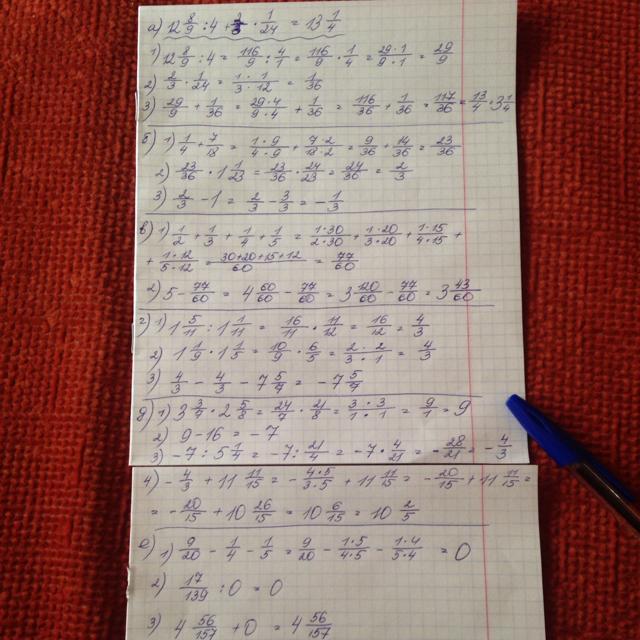 а) 12 8/9 : 4 + 2/3 · 1/24 = 13 1/4
1) 12 8/9 : 4 = 116/9 : 4/1 = 116/9 · 1/4 = 29·1/9·1 = 29/9
2) 2/3 · 1/24 = 1·1/3·12 = 1/36
3) 29/9 + 1/36 = 29·4/9·4 + 1/36 = 116/36 + 1/36 = 117/36 = 13/4 = 3 1/4
б) 1) 1/4 + 7/18 = 1·9/4·9 + 7·2/18·2 = 9/36 + 14/36 = 23/36
2) 23/36 · 1 1/23 = 23/36 · 24/23 = 24/36 = 2/3
3) 2/3 - 1 = 2/3 - 3/3 = - 1/3
в) 1) 1/2 + 1/3 + 1/4 + 1/5 = 1·30/2·30 + 1·20/3·20 + 1·15/4·15 +
+ 1·12/5·12 = 30+20+15+12/60 = 77/60
2) 5 - 77/60 = 4 60/60 - 77/60 = 3 120/60 - 77/60 = 3 43/60
г) 1) 1 5/11 : 1 1/11 = 16/11 · 11/12 = 16/12 = 4/3
2) 1 1/9 · 1 1/5 = 10/9 · 6/5 = 2·2/3·1 = 4/3
3) 4/3 - 4/3 - 7 5/9 = - 7 5/9
д) 1) 3 3/7 · 2 5/8 = 24/7 · 21/8 = 3·3/1·1 = 9/1 = 9
2) 9 - 16 = -7
3) -7 : 5 1/4 = -7 : 21/4 = -7 · 4/21 = - 28/21 = - 4/3
4) - 4/3 + 11 11/15 = - 4·5/3·5 + 11 11/15 = - 20/15 + 11 11/15 =
= - 20/15 + 10 26/15 = 10 6/15 = 10 2/5
е) 1) 9/20 - 1/4 - 1/5 = 9/20 - 1·5/4·5 - 1·4/5·4 = 0
2) 17/139 : 0 = 0
3) 4 56/157 + 0 = 4 56/157